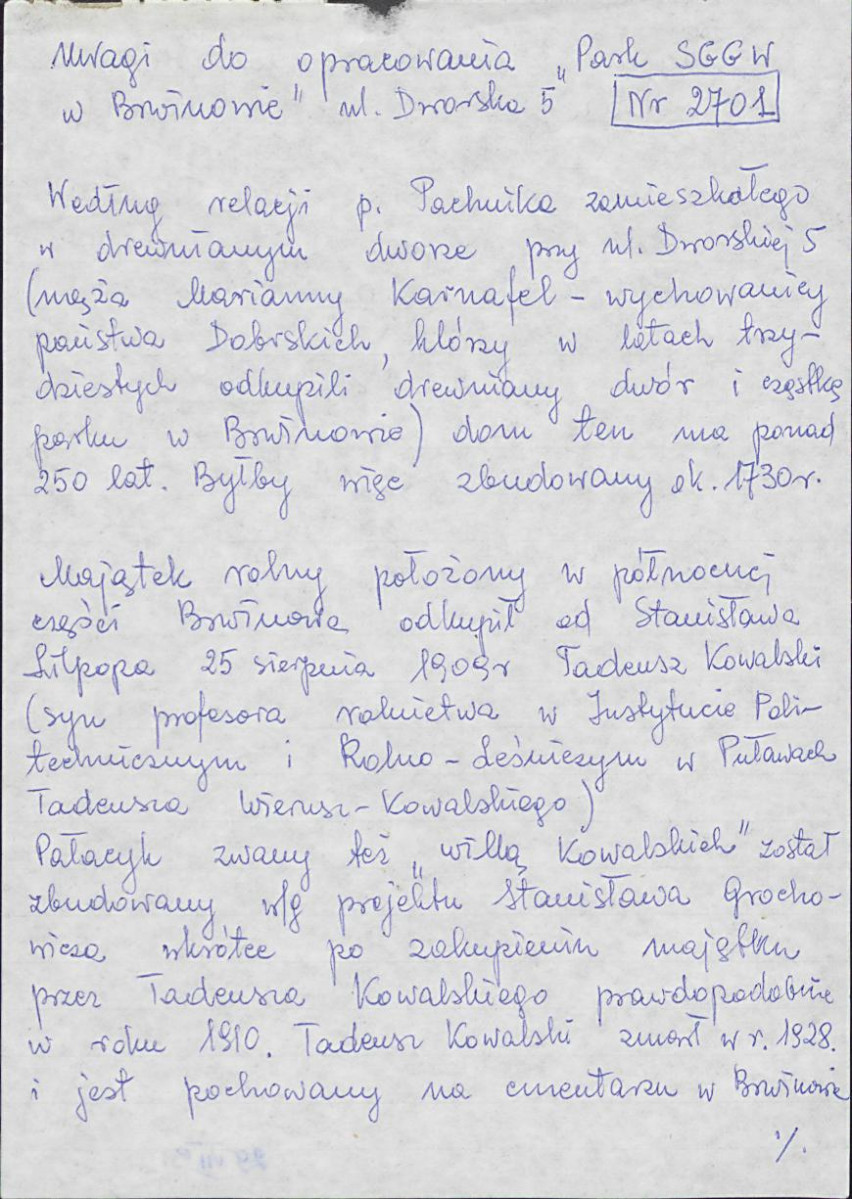 Uwagi do opracowania „Park SGGW
w Brwinowie" ul. Dworska 5 Nr 2701
Według relacji p. Pachnika zamieszkałego
w drewnianym dworze przy ul. Dworskiej 5
(męża Marianny Karnafel – wychowanicy
państwa Dobrskich, którzy w latach trzy-
dziestych odkupili drewniany dwór i cząstkę
parku w Brwinowie) dom ten ma ponad
250 lat. Byłby więc zbudowany ok. 1730r.
Majątek rolny położony w północnej
części Brwinowa odkupił od Stanisława
Lilpopa 25 sierpnia 1909r Tadeusz Kowalski
(syn profesora rolnictwa w Instytucie Poli-
technicznym i Rolno-Leśniczym w Puławach
Tadeusza Wierusz-Kowalskiego)
Pałacyk zwany też „willą Kowalskich" został
zbudowany w/g projektu Stanisława Grocho-
wicza wkrótce po zakupieniu majątku
przez Tadeusza Kowalskiego prawdopodobnie
w roku 1910. Tadeusz Kowalski zmarł w r. 1928.
i jest pochowany na cmentarzu w Brwinowie
·/.